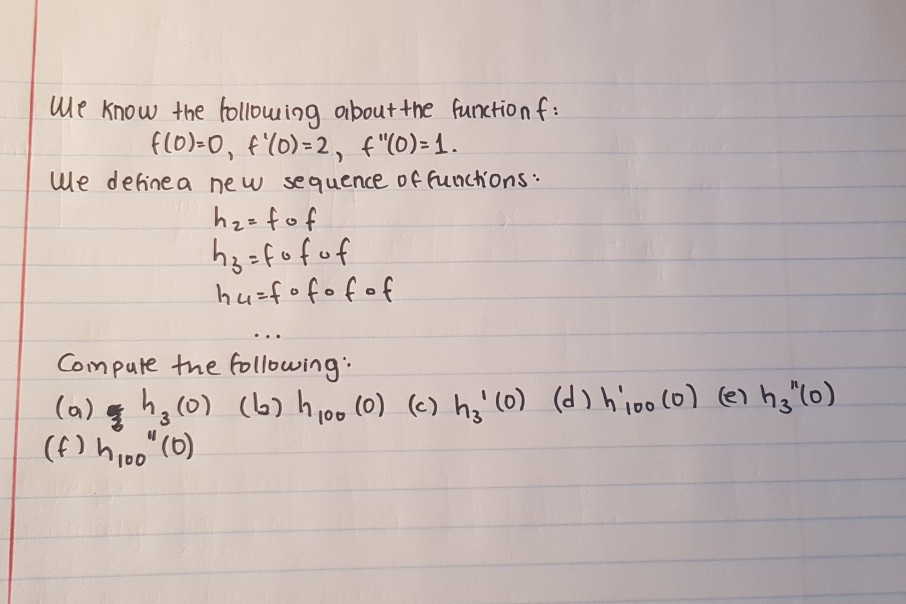 We know the following about the function f:
f(0)=0, f'(0)=2, f"(0)=1.
We define a new sequence of functions:
h₂=f∘f
h₃=f∘f∘f
h₄=f∘f∘f∘f
...
Compute the following:
(a) h₃(0) (b) h₁₀₀(0) (c) h₃'(0) (d) h'₁₀₀(0) (e) h₃"(0)
(f) h₁₀₀"(0)